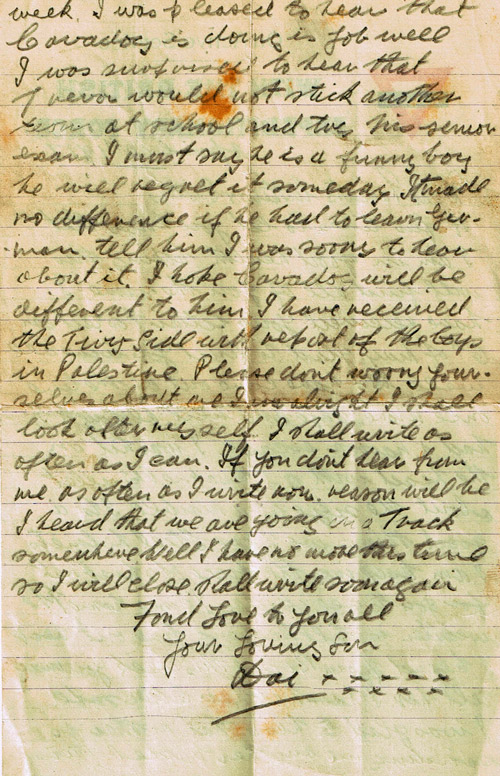 week. I was pleased to hear that
Cavadog is doing is job well
I was surprised to hear that
Ifever would not stick another
term at school and try his senior
exam I must say he is a funny boy
he will regret it someday. It made
no difference if he had to learn Ger-
-man. tell him I was sorry to hear
about it. I hope Cavadog will be
different to him. I have received
the Tivy Side with report of the boys
in Palestine. Please dont worry your-
selves about me I am alright I shall
look after myself. I shall write as
often as I can. If you dont hear from
me as often as I write now. reason will be
I heard that we are going in a Track
somewhere Well I have no more this time
so I will close shall write soon again
Fond Love to you all
Your Loving Son
Dai x x x x x
x x x x